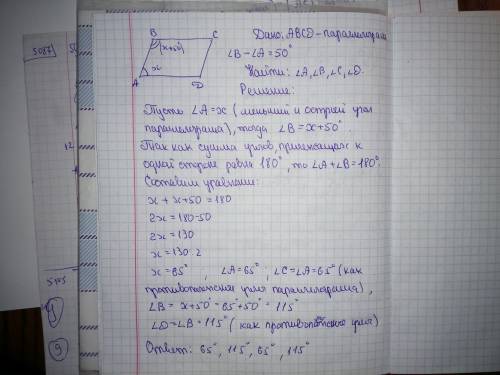 5087
B
C
(x+50)
x
A
D
Дано: ABCD - параллелограм
∠B - ∠A = 50°
Найти: ∠A, ∠B, ∠C, ∠D.
Решение:
Пусть ∠A = x (меньший и острый угол
параллелограма), тогда ∠B = x + 50°.
Так как сумма углов, прилежащих к
одной стороне равна 180°, то ∠A + ∠B = 180°.
Составим уравнение:
x + x + 50 = 180
2x = 180 - 50
2x = 130
x = 130 : 2
x = 65° , ∠A = 65° , ∠C = ∠A = 65° (как
противоположные углы параллелограма) ,
∠B = x + 50° = 65° + 50° = 115°
∠D = ∠B = 115° (как противополож углы)
Ответ: 65° , 115° , 65° , 115°
9